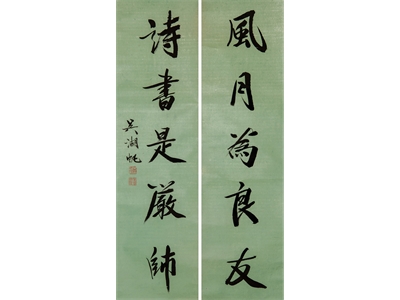 風月為良友
詩書是嚴師
吳湖帆